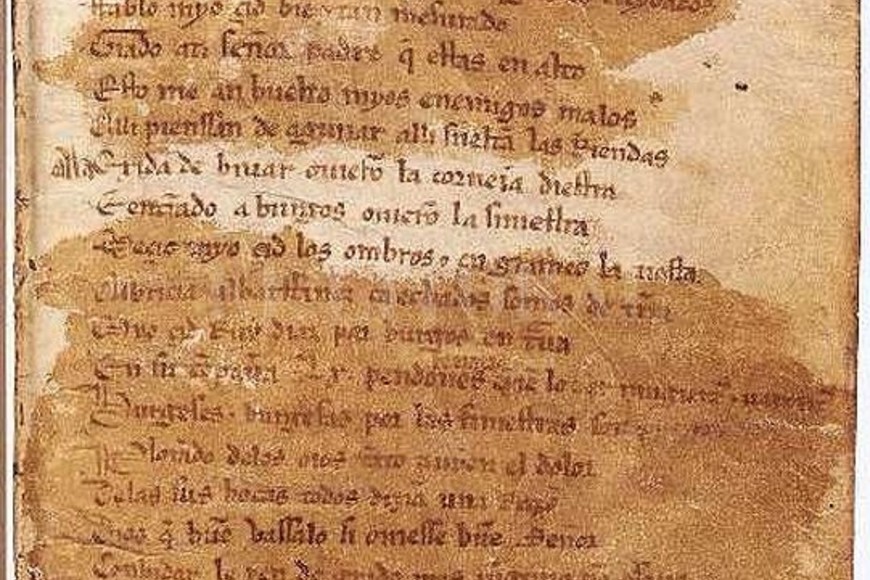 Fablo myo çid bien ⁊ tan mesurado
Grado ati señor padre q̃ estas en alto
Esto me an buelto myos enemigos malos
Alli pienssan de aguiiar alli sueltã las Riendas
alla Exida de biuar ouierõ la corneia diestra
E entrãdo a burgos ouierõ la siniestra
Meçio myo çid los ombros ⁊ engrameo la tiesta
albricia albarffanez ca echados somos de tr̃ra
Myo çid Ruy diaz por burgos en traua
En su cõpaña .Lx. pendones
Burgeses ⁊ burgesas por las siniestras son
Plorãdo delos oios tãto auyen el dolor
Delas sus bocas todos dizian una Razõ
Dios q̃ buẽ vassalo si ouiesse buẽ Señor
Conbidar le yen de grado mas